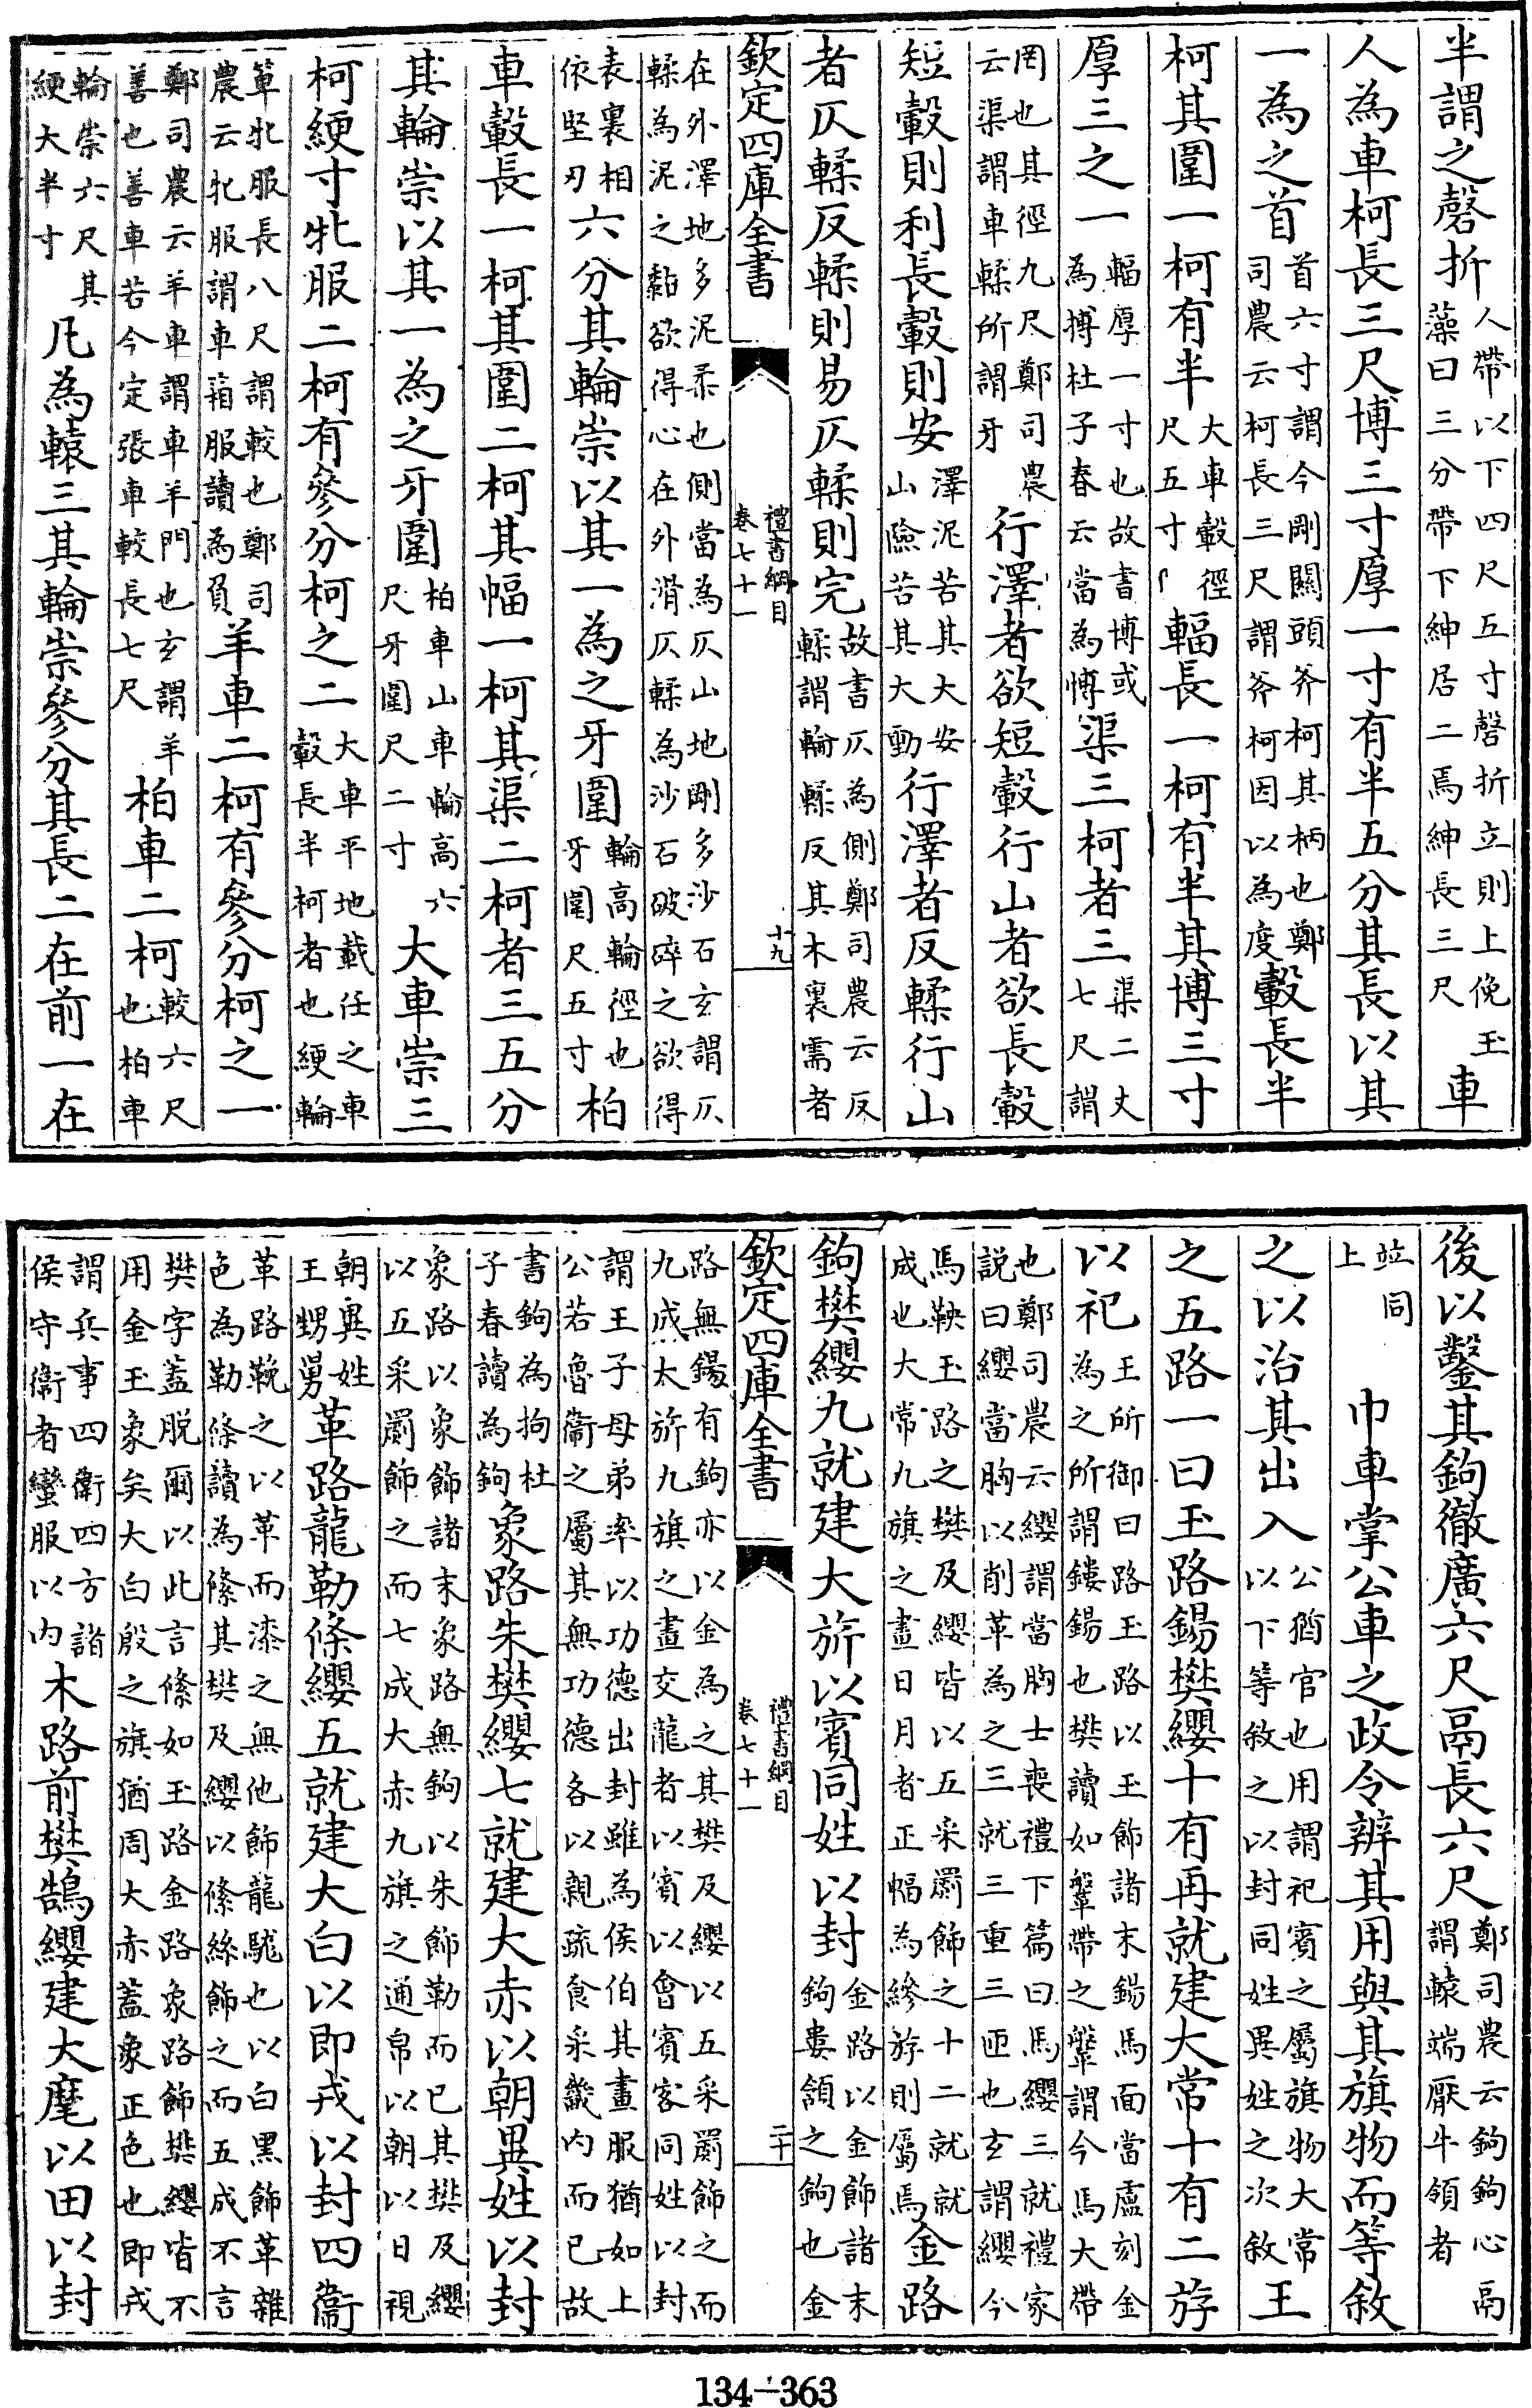 半謂之磬折人帶以下四尺五寸磬折立則上俛玉藻曰三分帶下紳居二焉紳長三尺車
人為車柯長三尺博三寸厚一寸有半五分其長以其
一為之首首六寸謂今剛關頭斧柯其柄也鄭司農云柯長三尺謂斧柯因以為度轂長半
柯其圍一柯有半大車轂徑尺五寸輻長一柯有半其博三寸
厚三之一輻厚一寸也故書博或為摶杜子春云當為博渠三柯者三渠二丈七尺謂
罔也其徑九尺鄭司農云渠謂車輮所謂牙行澤者欲短轂行山者欲長轂
短轂則利長轂則安澤泥苦其大安山險苦其大動行澤者反輮行山
者仄輮反輮則易仄輮則完故書仄為側鄭司農云反輮謂輪輮反其木裏需者
欽定四庫全書
禮書綱目
卷七十一
十九
在外澤地多泥柔也側當為仄山地剛多沙石玄謂仄輮為泥之黏欲得心在外滑仄輮為沙石破碎之欲得
表裏相依堅刃六分其輪崇以其一為之牙圍輪高輪徑也牙圍尺五寸柏
車轂長一柯其圍二柯其幅一柯其渠二柯者三五分
其輪崇以其一為之牙圍柏車山車輪高六尺牙圍尺二寸大車崇三
柯綆寸牝服二柯有參分柯之二大車平地載任之車轂長半柯者也綆輪
箄牝服長八尺謂較也鄭司農云牝服謂車箱服讀為負羊車二柯有參分柯之一
鄭司農云羊車謂車羊門也玄謂羊善也善車若今定張車較長七尺柏車二柯較六尺也柏車
輪崇六尺其綆大半寸凡為轅三其輪崇參分其長二在前一在
後以鑿其鉤徹廣六尺鬲長六尺鄭司農云鉤鉤心鬲謂轅端厭牛領者
竝同上巾車掌公車之政令辨其用與其旗物而等敘
之以治其出入公猶官也用謂祀賓之屬旗物大常以下等敘之以封同姓異姓之次敘王
之五路一曰玉路錫樊纓十有再就建大常十有二斿
以祀王所御曰路玉路以玉飾諸末鍚馬面當盧刻金為之所謂鏤鍚也樊讀如鞶帶之鞶謂今馬大帶
也鄭司農云纓謂當胸士喪禮下篇曰馬纓三就禮家說曰纓當胸以削革為之三就三重三匝也玄謂纓今
馬鞅玉路之樊及纓皆以五采罽飾之十二就就成也大常九旗之畫日月者正幅為縿斿則屬焉金路
鉤樊纓九就建大旂以賓同姓以封金路以金飾諸末鉤婁頷之鉤也金
欽定四庫全書
禮書綱目
卷七十一
二十
路無鍚有鉤亦以金為之其樊及纓以五采罽飾之而九成大旂九旗之畫交龍者以賓以會賓客同姓以封
謂王子母弟率以功德出封雖為侯伯其畫服猶如上公若魯衞之屬其無功德各以親疏食采畿內而已故
書鉤為拘杜子春讀為鉤象路朱樊纓七就建大赤以朝異姓以封
象路以象飾諸末象路無鉤以朱飾勒而已其樊及纓以五采罽飾之而七成大赤九旗之通帛以朝以日視
朝異姓王甥舅革路龍勒條纓五就建大白以即戎以封四衞
革路鞔之以革而漆之無他飾龍駹也以白黑飾革雜色為勒條讀為絛其樊及纓以絛絲飾之而五成不言
樊字蓋脫爾以此言絛如玉路金路象路飾樊纓皆不用金玉象矣大白殷之旗猶周大赤蓋象正色也即戎
謂兵事四衛四方諸侯守衞者蠻服以內木路前樊鵠纓建大麾以田以封
134-363